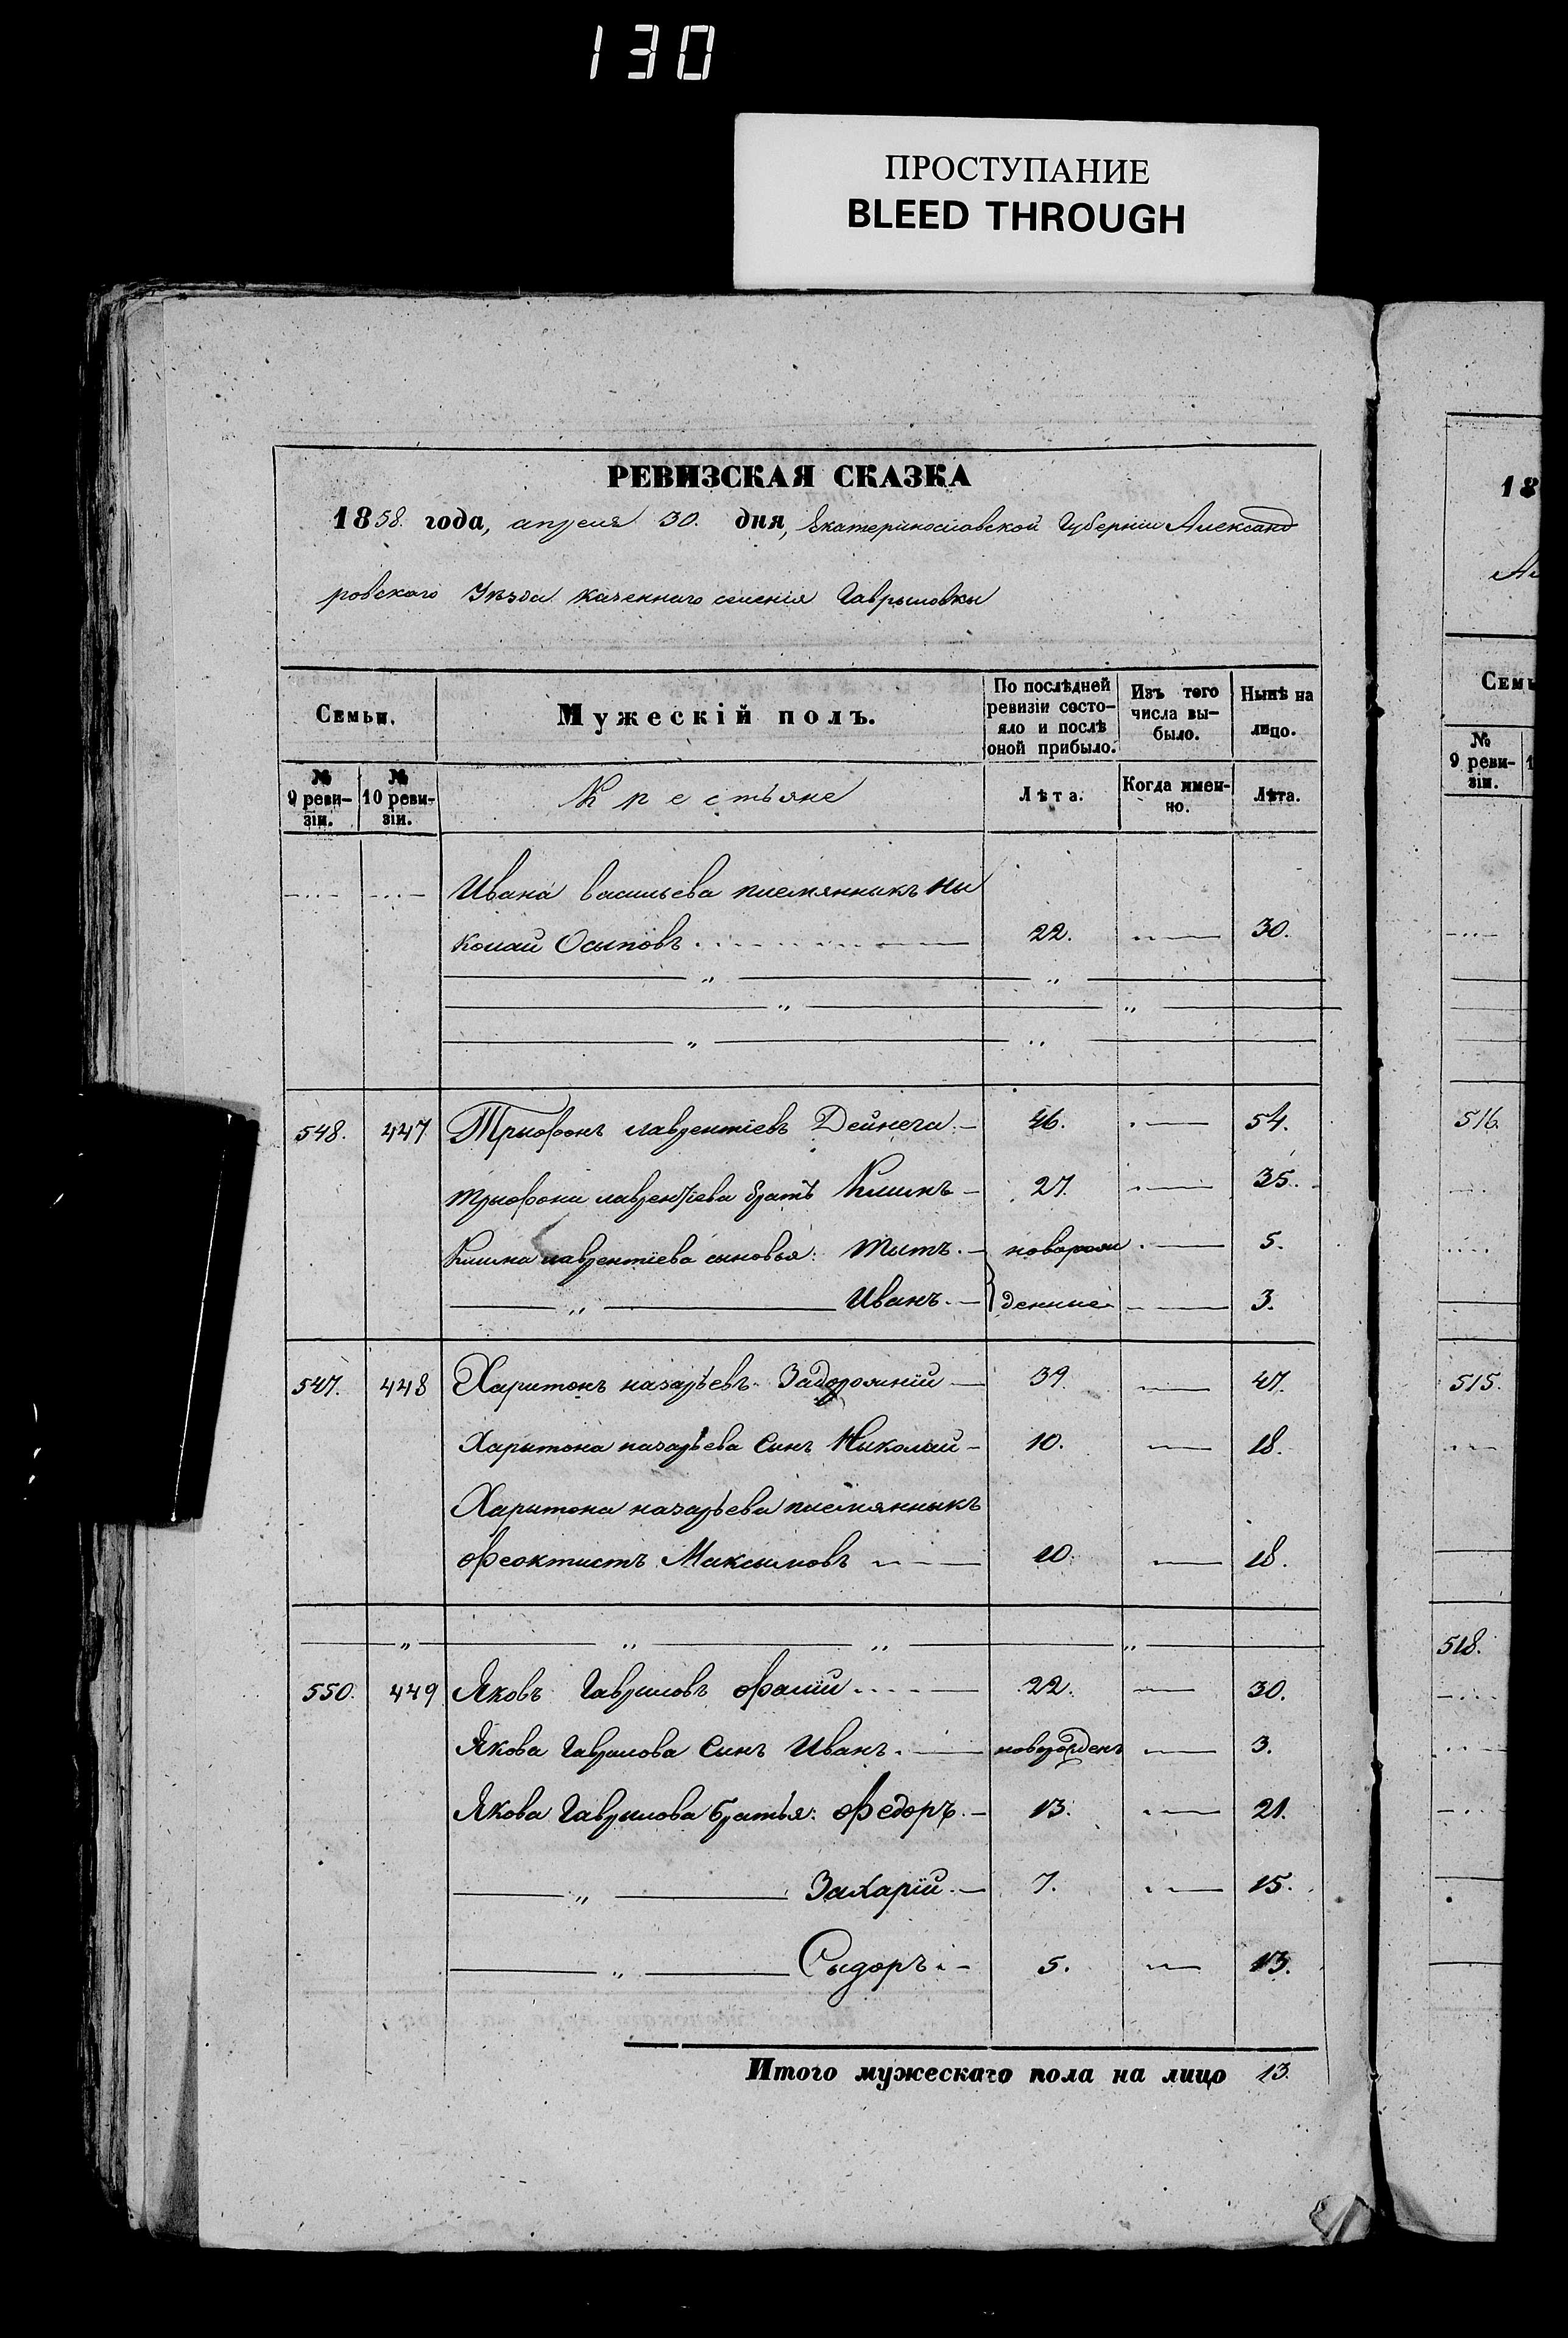 130
ПРОСТУПАНИЕ
BLEED THROUGH
РЕВИЗСКАЯ СКАЗКА
1858. года, апреля 30. дня, Екатеринославской Губерніи Александ
ровскаго Уѣзда казеннаго селенія Гаврыловкы
Семьи. Мужескій полъ. По послѣдней ревизіи состояло и послѣ оной прибыло. Изъ того числа выбыло. Нынѣ на лицо.
№ 9 ревизіи. № 10 ревизіи. Крестьяне Лѣта. Когда именно. Лѣта.
Ивана васильева племянныкъ Ны
колай Осыповъ 22. 30.
548. 447 Трыфонъ лаврентіевъ Дейнега 46. 54.
Трыфона лаврентіева братъ Климъ 27. 35.
Клима лаврентіева сыновья: Тытъ. новорож 5.
Иванъ. денные 3.
547. 448 Харитонъ назарьевъ Задорожній 39. 47.
Харытона назарьева Сынъ Ныколай 10. 18.
Харытона назарьева племянныкъ
Феоктистъ Максымовъ 10. 18.
550. 449 Яковъ Гаврыловъ Фалій 22. 30.
Якова Гаврылова Сынъ Иванъ. новорожденъ 3.
Якова Гаврылова братья: Федоръ. 13. 21.
Захарій. 7. 15.
Сыдоръ. 5. 13.
Итого мужескаго пола на лицо 13.
18
Ал
Семь
№ 9 ревизіи. 1
516.
515.
518.